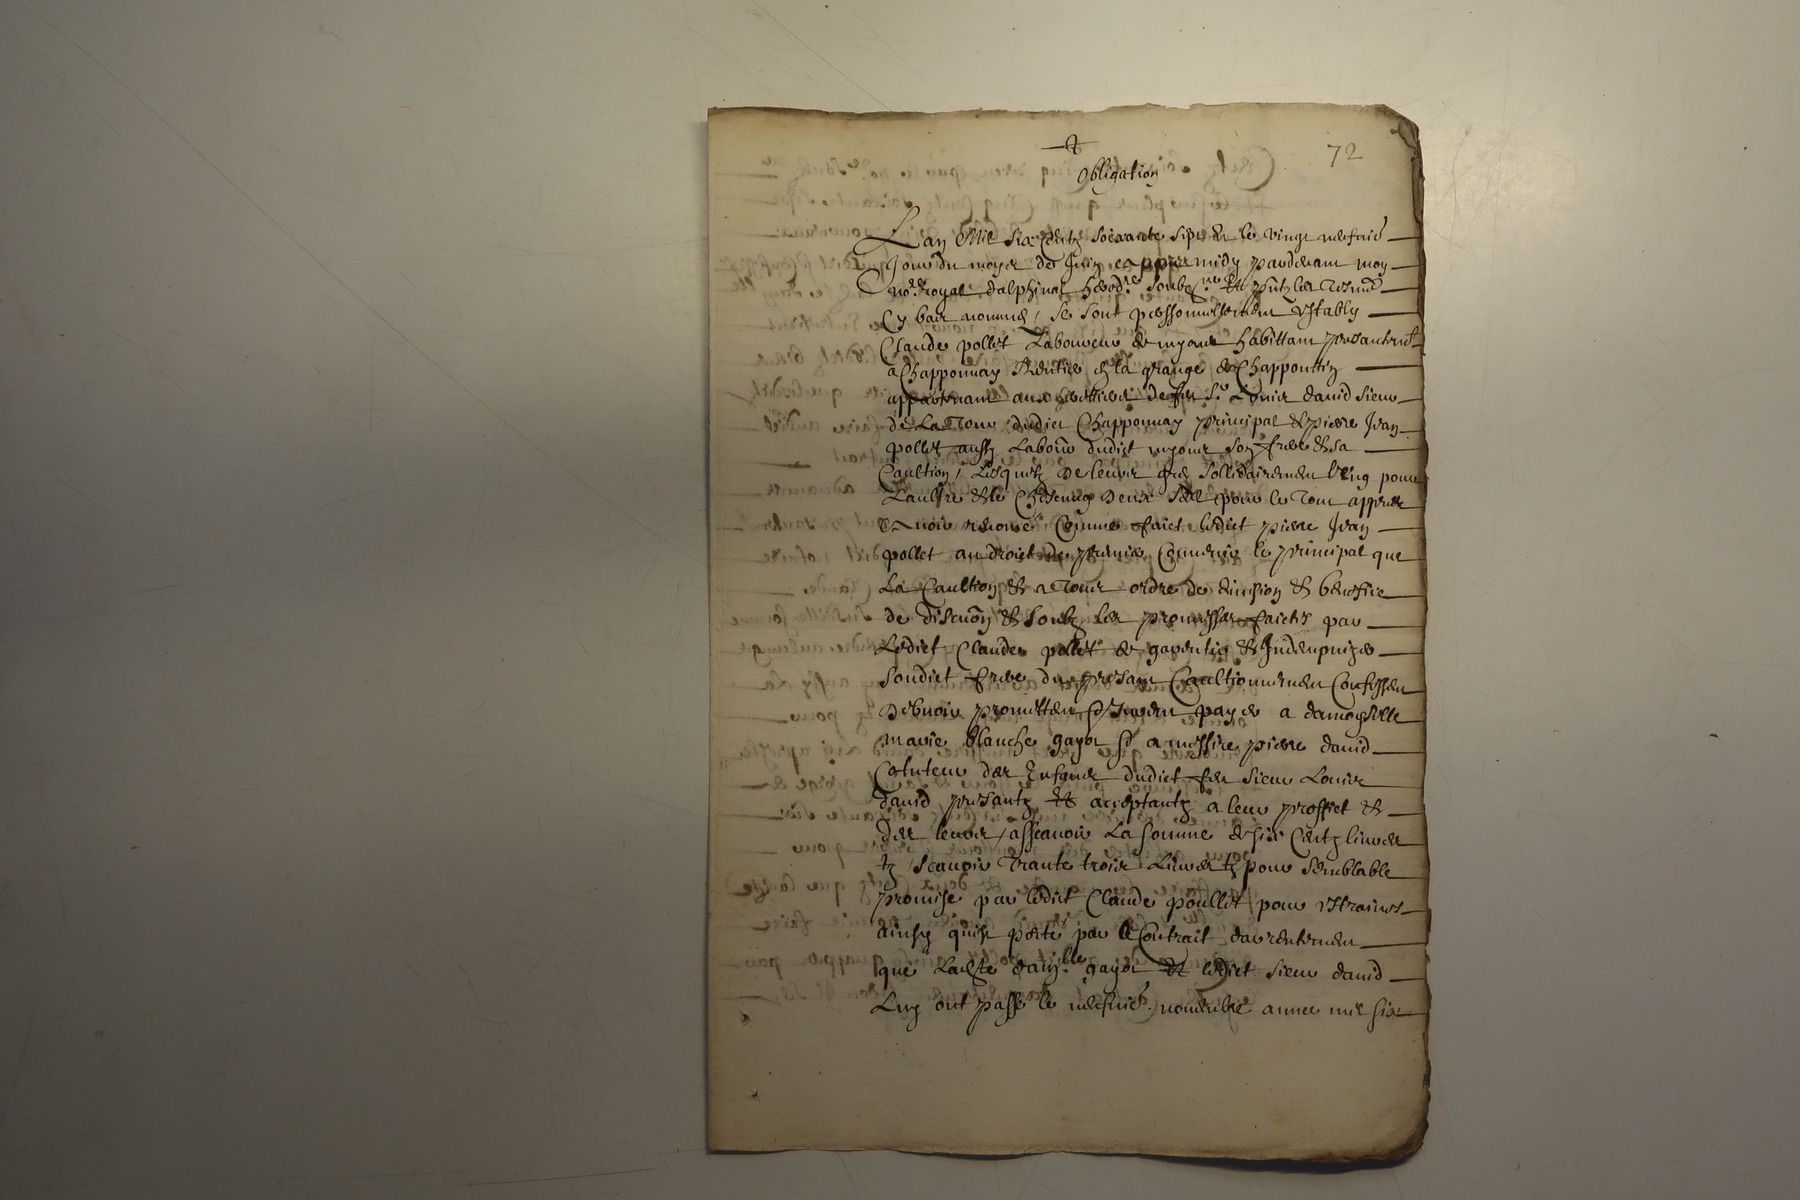 72
Obligation
L'an Mil six centz soixante sept & le vingt neufviè
Jour du moys de Juin appres midy pardevant moy
no.re royal dalphinal heredre soubzné & pntz les tesmo
Cy bas nommes, se sont personnellement establys
Claude pollet Laboureur de myons habittant presantemt
a Chapponnay Rentier en la grange de Chappottin
appartenant aux herittiers de feu Sr. Louis david sieur
de La Tour dudict Chapponnay principal & pierre Jean
pollet aussy Labour dudict myons son frere & sa
Caultion, Lesquelz de leurs gres sollidairement l'ung pour
L'aultre & le chescung deux seul pour le tout appres
avoir renoncé comme faict ledict pierre Jean
pollet au droict de premier convenir le principal que
La Caultion & a tous ordre de division & benefice
de discution & soubz les promesses faictes par
Ledict Claude pollet de garentir & Indempnizer
sondict frere du presant Caultionnement Confessent
debvoir promettent payer a damoyselle
marie blanche gayot & a messire pierre david
Cotuteur des Enfans dudict feu sieur Louis
david presantz & acceptantz a leur proffict &
des leurs, asscavoir La somme de six Centz livres
tz scavoir trante trois Livres tz pour semblable
promise par ledict Claude poullet pour estraines
ainsy quest porté par le Contrait d'arrentement
que Ladte damlle gayot & ledict sieur david
Luy ont passé le neufviè novembre annee mil six